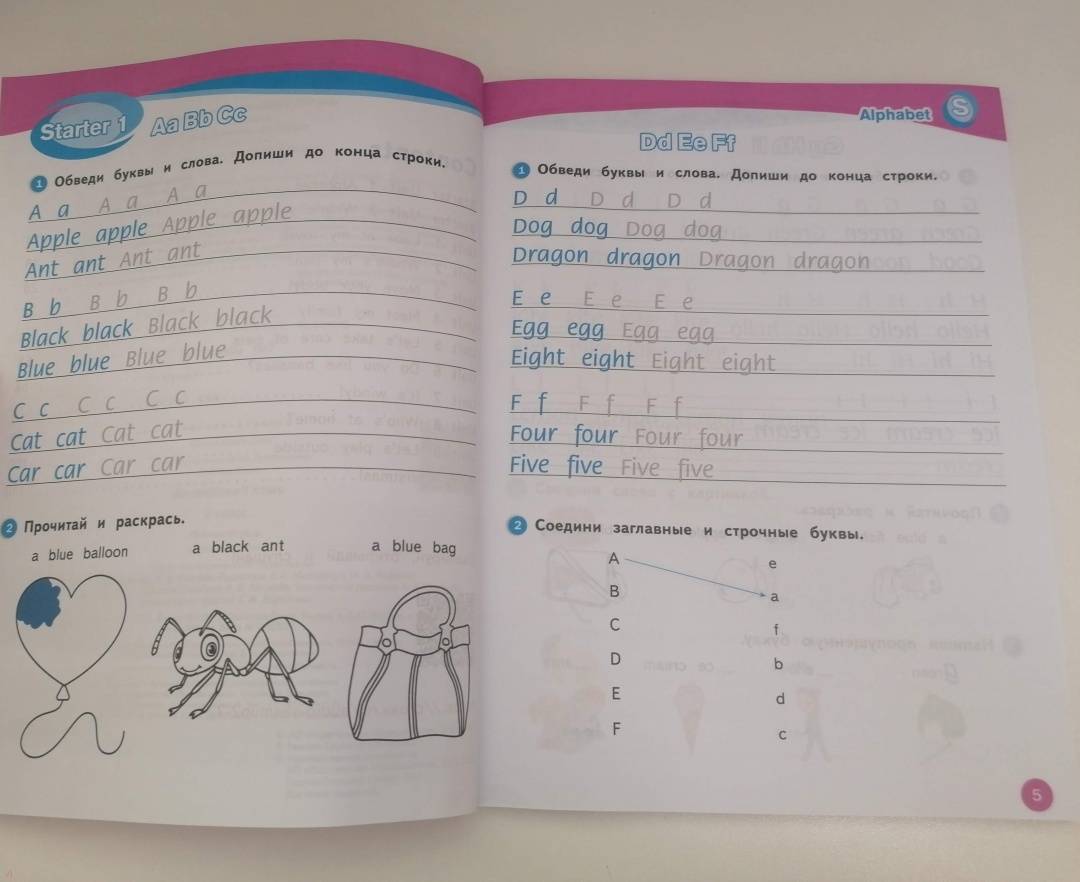 Starter 1 Aa Bb Cc
1 Обведи буквы и слова. Допиши до конца строки.
A a A a A a
Apple apple Apple apple
Ant ant Ant ant
B b B b B b
Black black Black black
Blue blue Blue blue
C c C c C c
Cat cat Cat cat
Car car Car car
2 Прочитай и раскрась.
a blue balloon a black ant a blue bag
Alphabet S
Dd Ee Ff
1 Обведи буквы и слова. Допиши до конца строки.
D d D d D d
Dog dog Dog dog
Dragon dragon Dragon dragon
E e E e E e
Egg egg Egg egg
Eight eight Eight eight
F f F f F f
Four four Four four
Five five Five five
2 Соедини заглавные и строчные буквы.
A e
B a
C f
D b
E d
F c
5